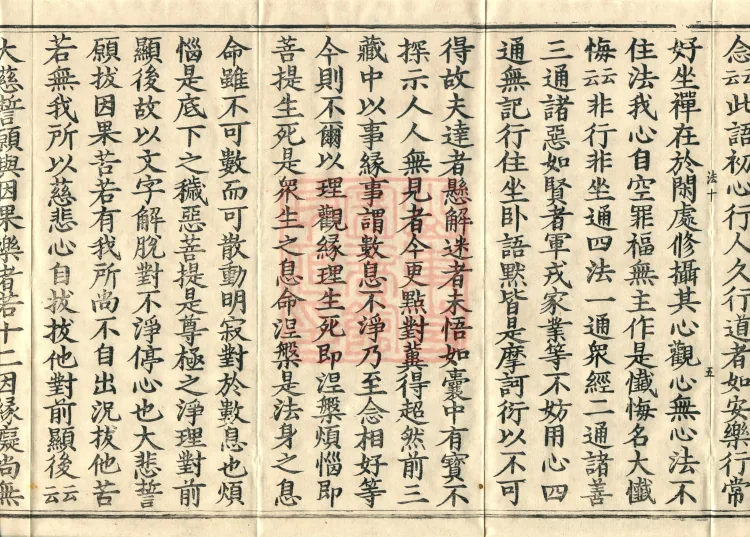 念云云此語初心行人久行道者如安樂行常
好坐禪在於閑處修攝其心觀心無心法不
法十
五
住法我心自空罪福無主作是懺悔名大懺
悔云云非行非坐通四法一通眾經二通諸善
三通諸惡如賢者軍戎家業等不妨用心四
通無記行住坐卧語默皆是摩訶衍以不可
得故夫達者懸解迷者未悟如囊中有寳不
探示人人無見者今更點對冀得超然前三
藏中以事緣事謂數息不淨乃至念相好等
今則不爾以理觀緣理生死即涅槃煩惱即
菩提生死是眾生之息命涅槃是法身之息
命雖不可數而可散動明寂對於數息也煩
惱是底下之穢惡菩提是尊極之淨理對前
顯後故以文字解脫對不淨停心也大悲誓
願拔因果苦若有我所尚不自出況拔他苦
若無我所以慈悲心自拔拔他對前顯後云云
大慈誓願與因果樂者若十二因緣癡尚無